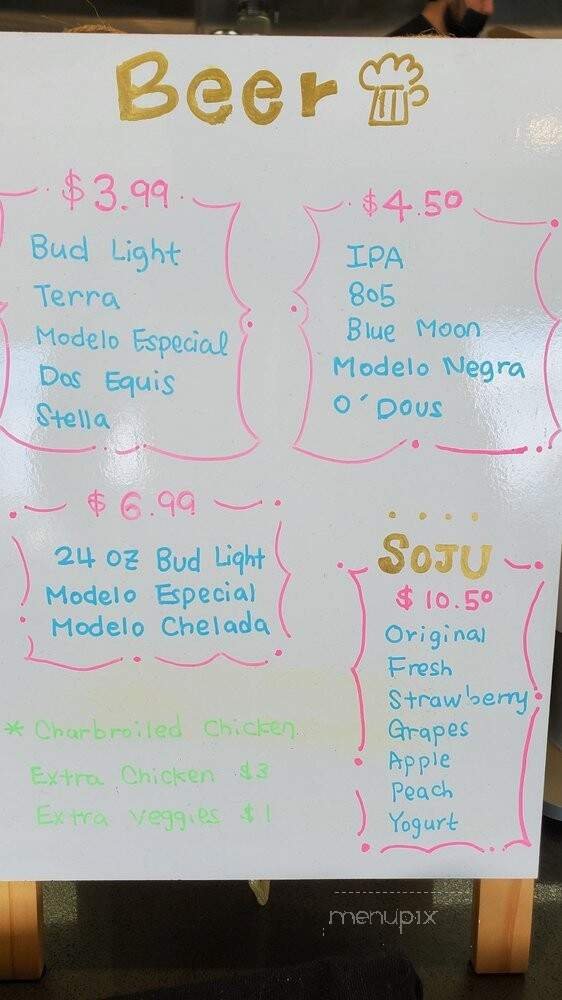 Beer
$3.99
Bud Light
Terra
Modelo Especial
Dos Equis
Stella
$4.50
IPA
805
Blue Moon
Modelo Negra
O'Dous
$6.99
24 OZ Bud Light
Modelo Especial
Modelo Chelada
SOJU
$10.50
Original
Fresh
Strawberry
Grapes
Apple
Peach
Yogurt
* Charbroiled Chicken
Extra Chicken $3
Extra veggies $1
menupix